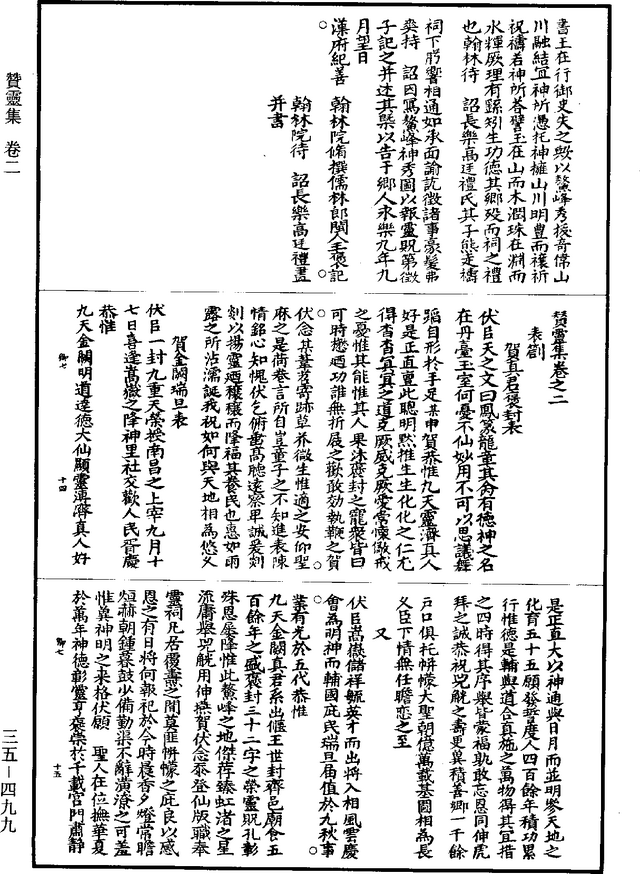 書王在行御史失之歟以鼇峰秀拔奇偉山
川融結宜神所憑托神擁山川明豊而禳祈
祝禱若神所答譬玉在山而木潤珠在淵而
水輝厥理有繇矧生功德其鄉歿而祠之禮
也翰林待　詔長樂高廷禮氏其子熊走禱
祠下肸響相通如承面諭訛徵諸事豪髮弗
爽特　詔因寫鼇峰神秀圖以報靈貺第徵
子記之并述其槩以告于鄉人永樂九年九
月望日
漢府紀善　翰林院脩撰儒林郎閩人王褒記
翰林院待　詔長樂高廷禮畫
并書
贊靈集卷之二
表劄
賀真君褒封表
伏㠯天之文曰鳳篆龍章其尚有德神之名
在丹臺玉室何憂不仙妙用不可以思議舞
蹈自形於手足某申賀恭惟九天靈濟真人
好是正直亶此聰明黙推生生化化之仁尤
得杳杳冥冥之道克厥威克厥愛當懷儆戒
之憂惟其能惟其人果沐褒封之寵衆皆曰
可時懋廼功誰無折屐之歡敢効執鞭之賀
伏念某葺芨寄跡草芥微生惟適之安仰聖
庥之是荷卷言所自豈童子之不知進表陳
情銘心知愧伏乞俯垂高聽遠察卑誠爰刻
剡以揚靈廼穰穰而降福其養民也惠如雨
露之所沾濡誕我祝如何與天地相為悠久
賀金闕瑞旦表
伏㠯一封九重天榮授南昌之上宰九月十
七日喜逢嵩嶽之降神里社交歡人民胥慶
恭惟
九天金闕明道達德大仙顯靈溥濟真人好
卿七　十四
是正直大以神通與日月而並明參天地之
化育五十五願發誓度人四百餘年積功累
行惟德是輔與道合真施之萬物得其宜措
之四時得其序舉皆蒙福孰敢忘恩同伸虎
拜之誠恭祝兕觥之壽更異積善鄉一千餘
戶口俱托帡幪大聖朝億萬載基圖相為長
久臣下情無任瞻戀之至
又
伏㠯嵩嶽儲祥毓英才而出將入相風雲慶
會為明神而輔國庇民瑞旦届值於九秋事
業有光於五代恭惟
九天金闕真君系出偃王世封齊邑廟食五
百餘年之盛褒封三十二字之榮靈貺孔彰
殊恩屢降惟此鼇峰之地傑存臻虹渚之星
流庸舉兕觥用伸燕賀伏念忝登仙版職奉
靈祠凡居覆燾之間莫匪帡幪之庇良以感
恩之有日將何報祀於今時晨香夕燈常瞻
烜赫朝鍾暮鼓少備勤渠不辭潢潦之可羞
惟冀神明之來格伏願　聖人在位撫華夏
於萬年神德彰靈亨褒崇於千載宮門肅靜
卿七　十五
贊靈集　卷二
三五－四九九